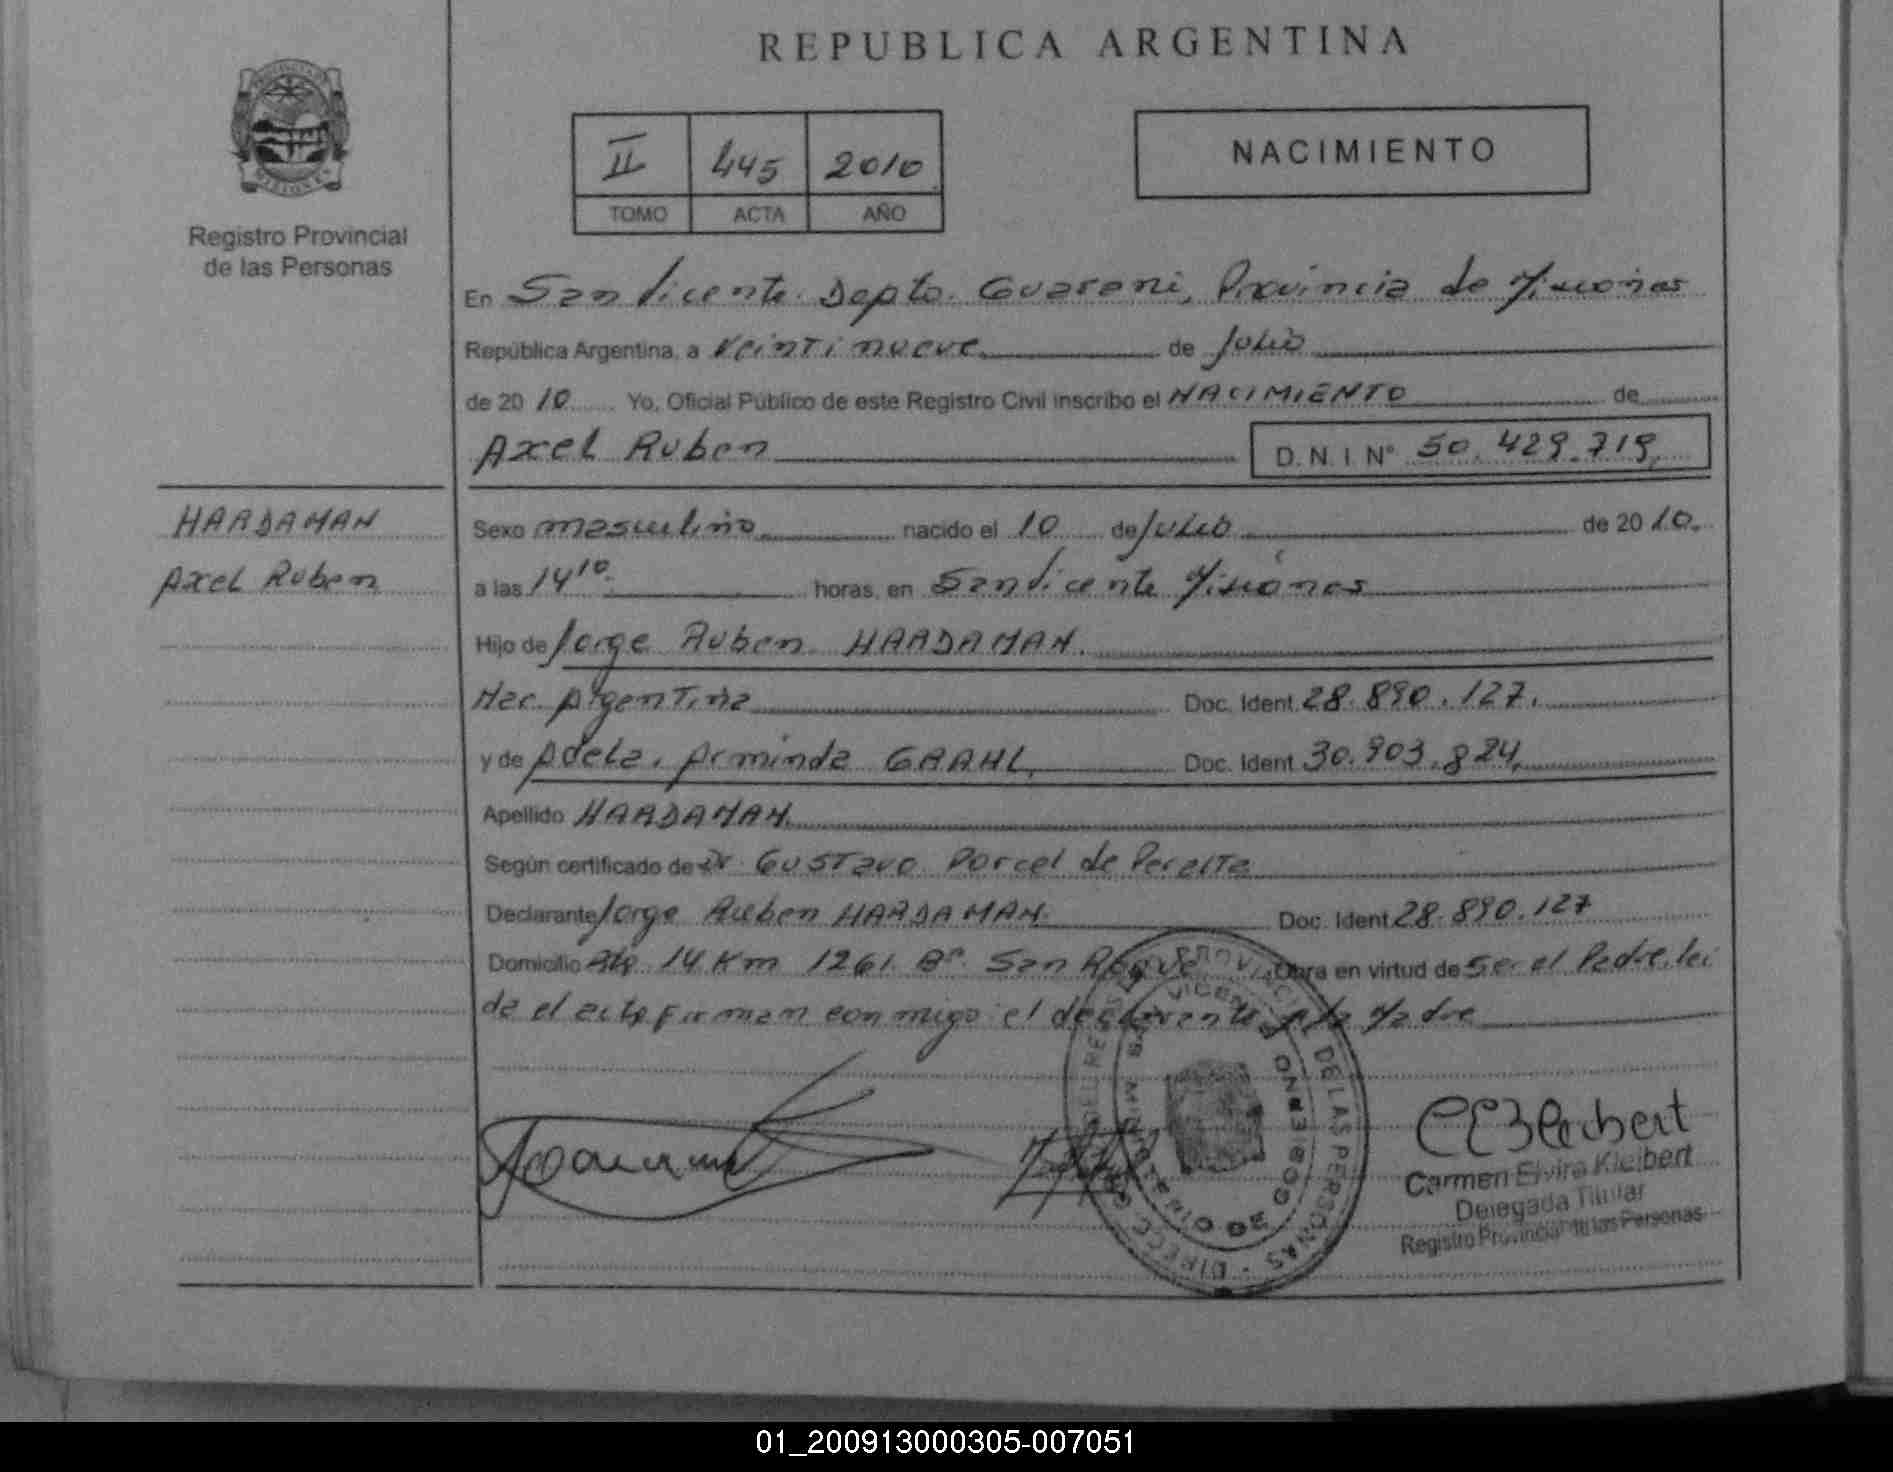 REPUBLICA ARGENTINA
PROVINCIA DE MISIONES
Registro Provincial
de las Personas
II 445 2010
TOMO ACTA AÑO
NACIMIENTO
En San Vicente Depto. Guarani, Provincia de Misiones
República Argentina, a Veintinueve de Julio
de 2010 Yo, Oficial Público de este Registro Civil inscribo el NACIMIENTO de
Axel Ruben D.N.I. N° 50.429.719.
HARDAMAN
Axel Ruben
Sexo masculino nacido el 10 de Julio de 2010.
a las 14 10. horas, en San Vicente Misiones
Hijo de Jorge Ruben HARDAMAN.
Nac. Argentina Doc. Ident. 28.890.127.
y de Adela Arminda GRAHL. Doc. Ident. 30.903.824.
Apellido HARDAMAN.
Según certificado de Dr. Gustavo Porcel de Peralta
Declarante Jorge Ruben HARDAMAN. Doc. Ident. 28.890.127
Domicilio Rta 14 Km 1261 B° San Roque Obra en virtud de ser el Padre, lei
da el acta firman conmigo el declarante y la Madre
DIRECC. GRAL. DEL REG. PROVINCIAL DE LAS PERSONAS
SAN VICENTE
GOBIERNO
Carmen Elvira Kleibert
Delegada Titular
Registro Provincial de las Personas
01_200913000305-007051